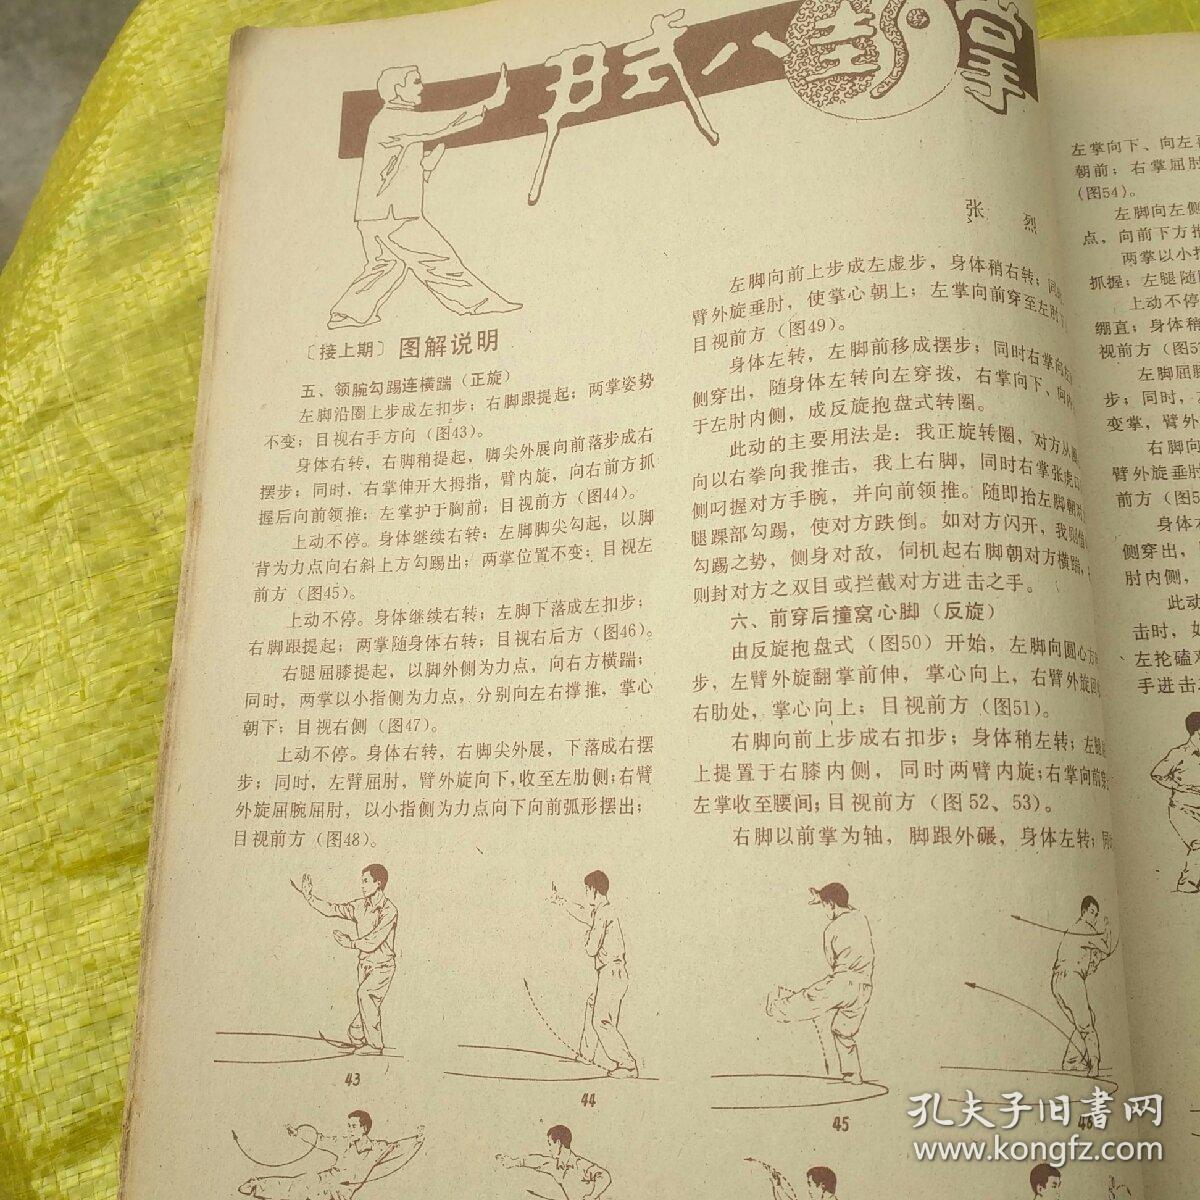 尹式八卦掌
张 烈
〔接上期〕图解说明
五、领腕勾踢连横踹（正旋）
左脚沿圈上步成左扣步；右脚跟提起；两掌姿势
不变；目视右手方向（图43）。
身体右转，右脚稍提起，脚尖外展向前落步成右
摆步；同时，右掌伸开大拇指，臂内旋，向右前方抓
握后向前领推；左掌护于胸前；目视前方（图44）。
上动不停。身体继续右转；左脚脚尖勾起，以脚
背为力点向右斜上方勾踢出；两掌位置不变；目视左
前方（图45）。
上动不停。身体继续右转；左脚下落成左扣步；
右脚跟提起；两掌随身体右转；目视右后方（图46）。
右腿屈膝提起，以脚外侧为力点，向右方横踹；
同时，两掌以小指侧为力点，分别向左右撑推，掌心
朝下；目视右侧（图47）。
上动不停。身体右转，右脚尖外展，下落成右摆
步；同时，左臂屈肘，臂外旋向下，收至左肋侧；右臂
外旋屈腕屈肘，以小指侧为力点向下向前弧形摆出；
目视前方（图48）。
左脚向前上步成左虚步，身体稍右转；同
臂外旋垂肘，使掌心朝上；左掌向前穿至左肘
目视前方（图49）。
身体左转，左脚前移成摆步；同时右掌向
侧穿出，随身体左转向左穿拨，右掌向下、向
于左肘内侧，成反旋抱盘式转圈。
此动的主要用法是：我正旋转圈，对方从
向以右拳向我推击，我上右脚，同时右掌张虎
侧叼握对方手腕，并向前领推。随即抬左脚朝对
腿踝部勾踢，使对方跌倒。如对方闪开，我则借
勾踢之势，侧身对敌，伺机起右脚朝对方横踹，
则封对方之双目或拦截对方进击之手。
六、前穿后撞窝心脚（反旋）
由反旋抱盘式（图50）开始，左脚向圆心方
步，左臂外旋翻掌前伸，掌心向上，右臂外旋回
右肋处，掌心向上；目视前方（图51）。
右脚向前上步成右扣步；身体稍左转；左腿
上提置于右膝内侧，同时两臂内旋；右掌向前穿
左掌收至腰间；目视前方（图52、53）。
右脚以前掌为轴，脚跟外碾，身体左转；同
左掌向下、向左
朝前；右掌屈肘
（图54）。
左脚向左侧
点，向前下方推
两掌以小指
抓握；左腿随
上动不停
绷直；身体稍
视前方（图5
左脚屈膝
步；同时，
变掌，臂外
右脚向
臂外旋垂肘
前方（图5
身体
侧穿出，
肘内侧，
此动
击时，如
左抡磕对
手进击
43
44
45
46
孔夫子旧書网
www.kongfz.com